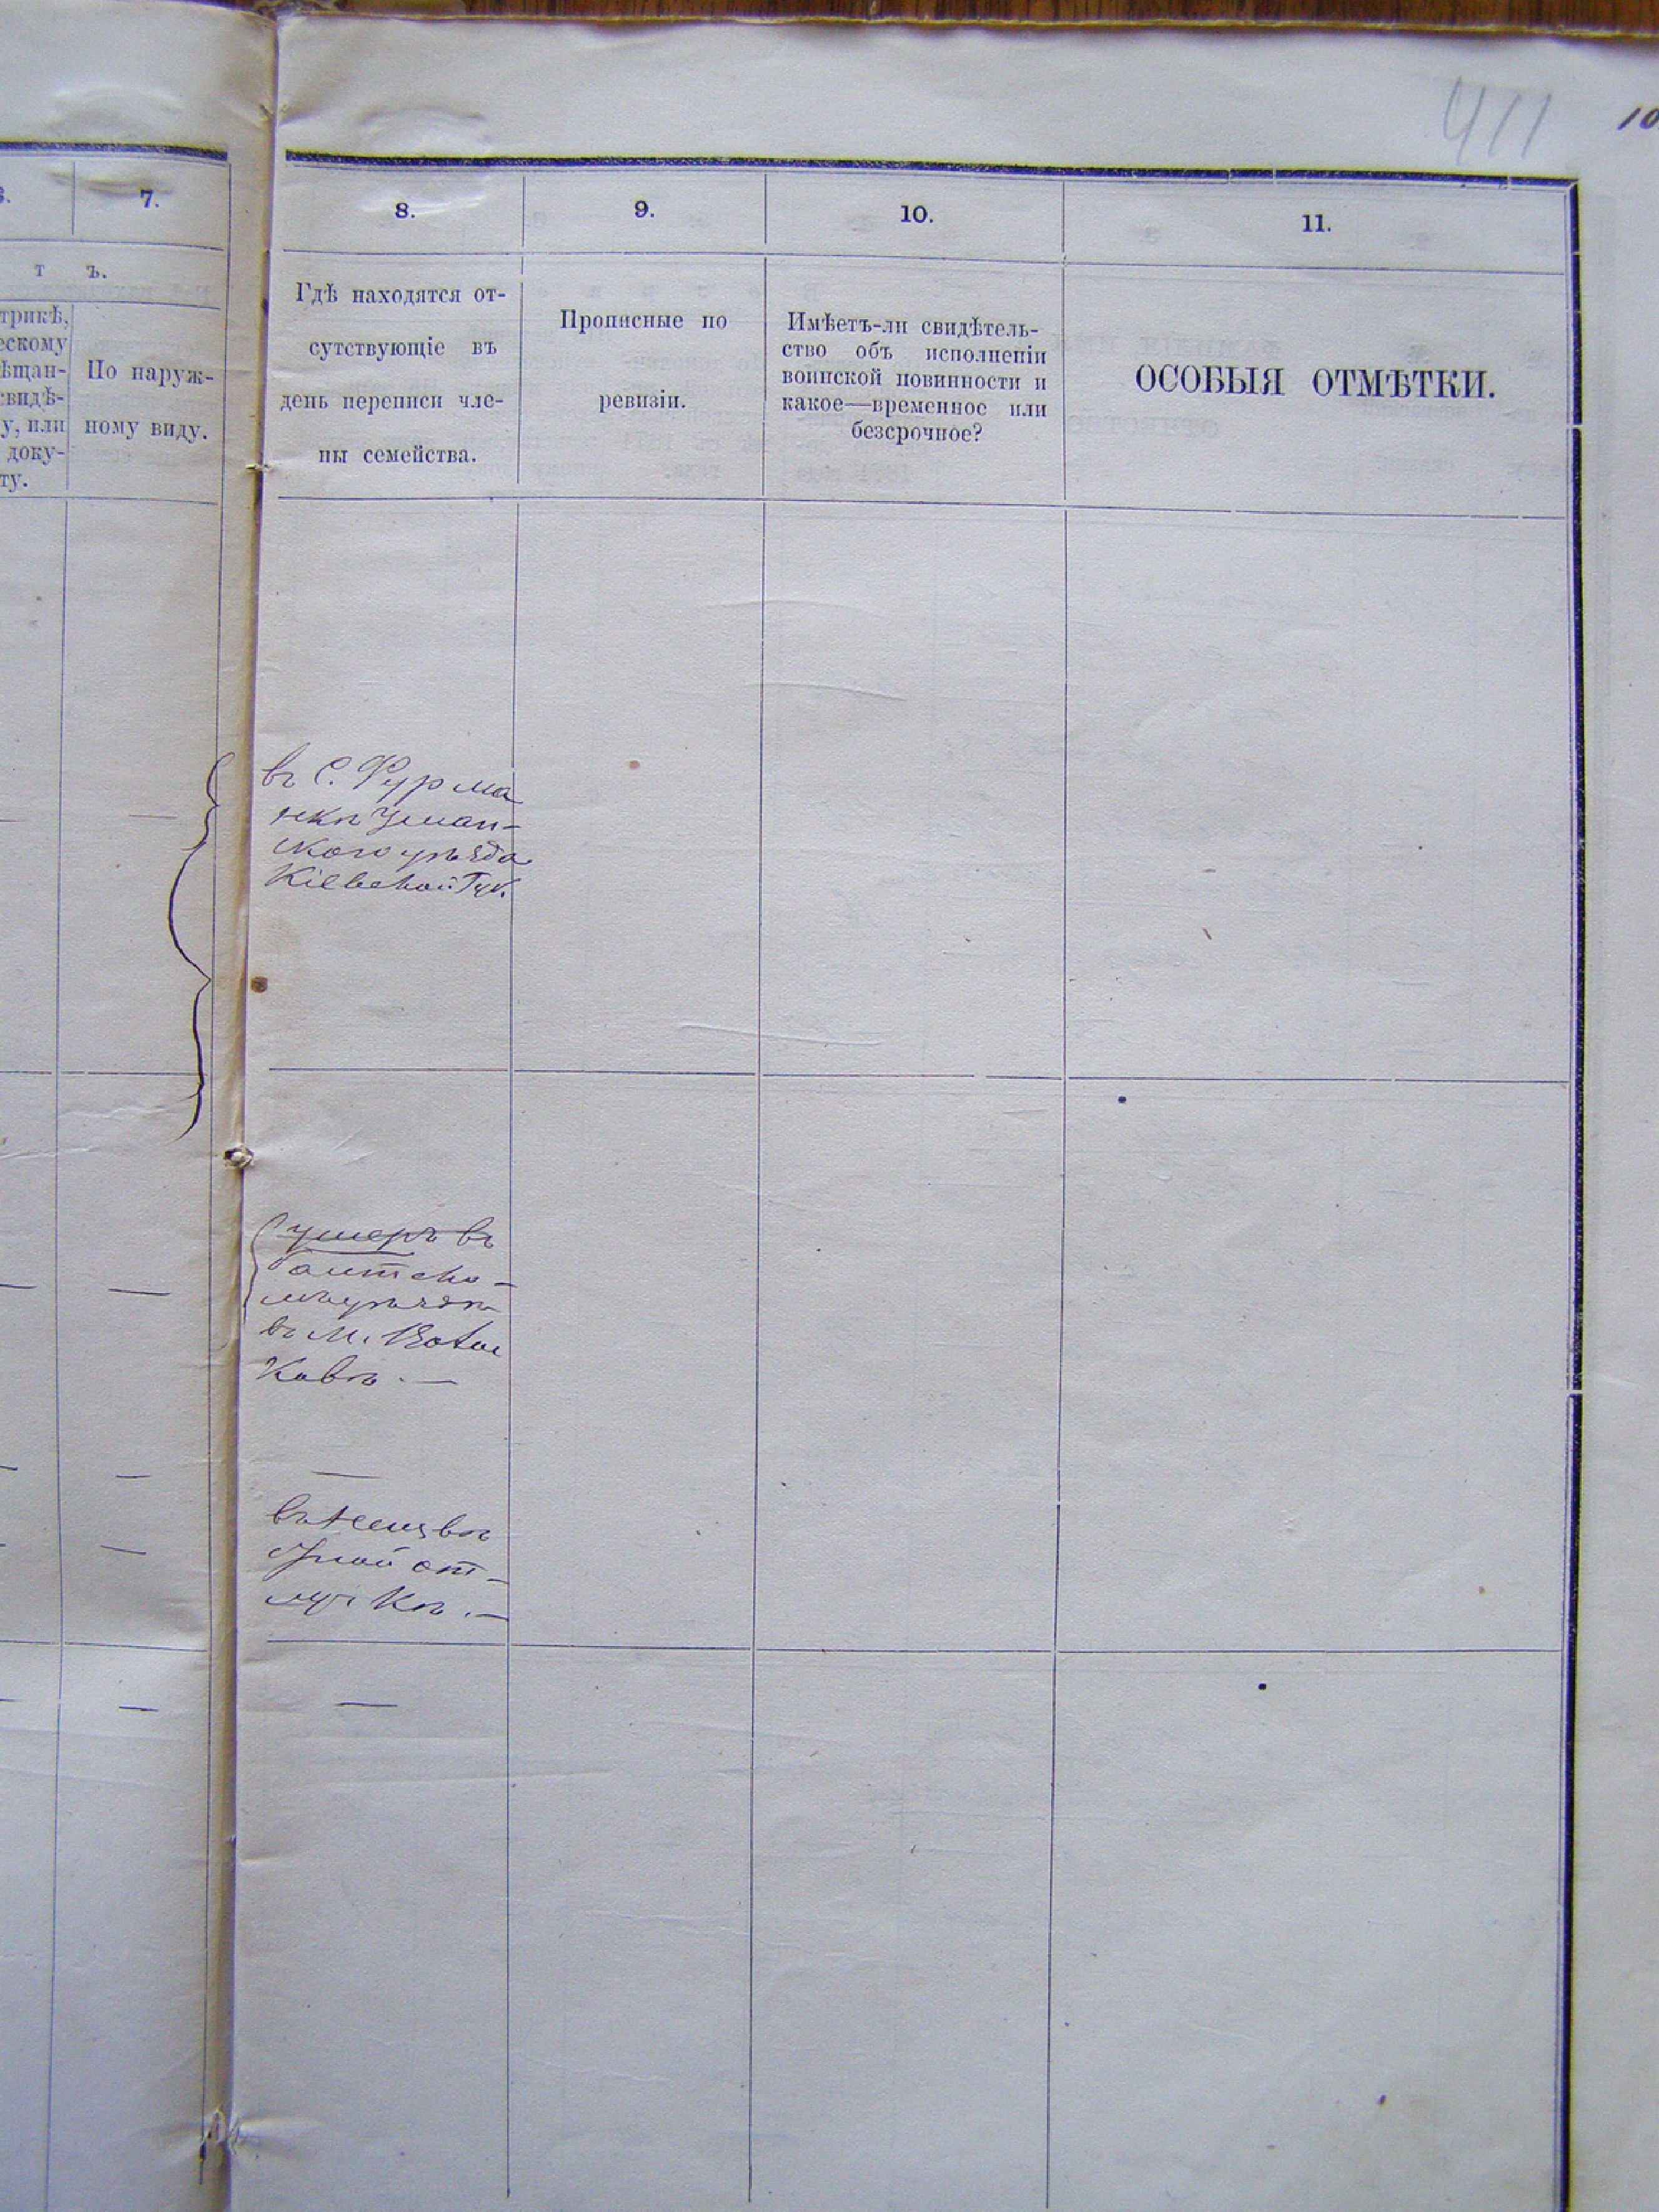 411
10
6.
7.
8.
9.
10.
11.
т ъ.
трикѣ,
ескому
ѣщан-
свидѣ-
у, или
доку-
ту.
По наруж-
ному виду.
Гдѣ находятся от-
сутствующіе въ
день переписи чле-
ны семейства.
Прописные по
ревизіи.
Имѣетъ-ли свидѣтель-
ство объ исполненіи
воинской повинности и
какое—временное или
безсрочное?
ОСОБЫЯ ОТМѢТКИ.
въ С. Фурма
нкѣ Уман-
скаго уѣзда
Кіевской Губ.
умеръ въ
уѣздѣ
въ М.
въ
ной от-
лучкѣ. —